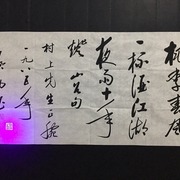 桃李春風
一杯酒江湖
夜雨十年
燈 山谷句
村上先生正腕
一九八五年
图